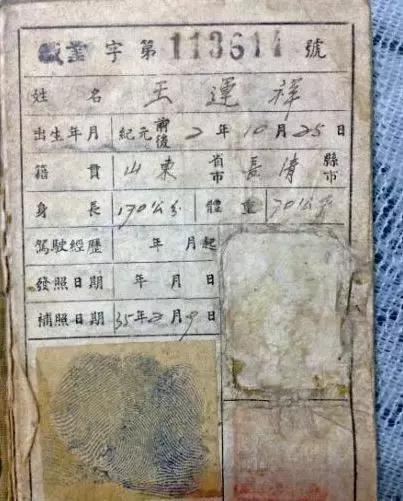 業字第113614號
姓名 王運祥
出生年月 紀元前後2年10月25日
籍貫 山東省市長清縣市
身長 170公分 體重 70公斤
駕駛經歷 年月起
發照日期 年月
補照日期 35年2月9日